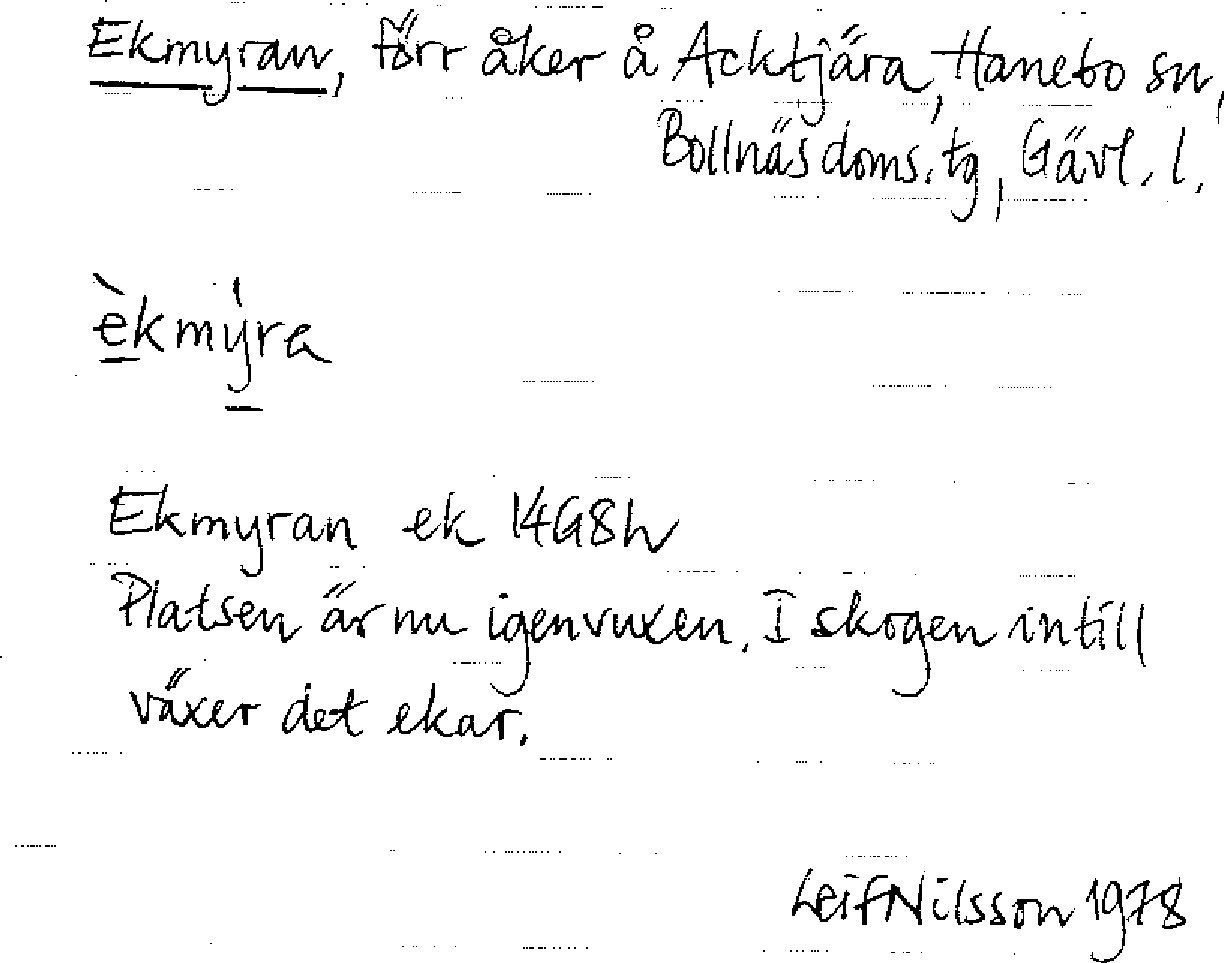 Ekmyran, förr åker å Acktjära, Hanebo sn,
Bollnäs doms.tg, Gävl. l.
èkmýra
Ekmyran ek 14G8h
Platsen är nu igenvuxen. I skogen intill
växer det ekar.
Leif Nilsson 1978